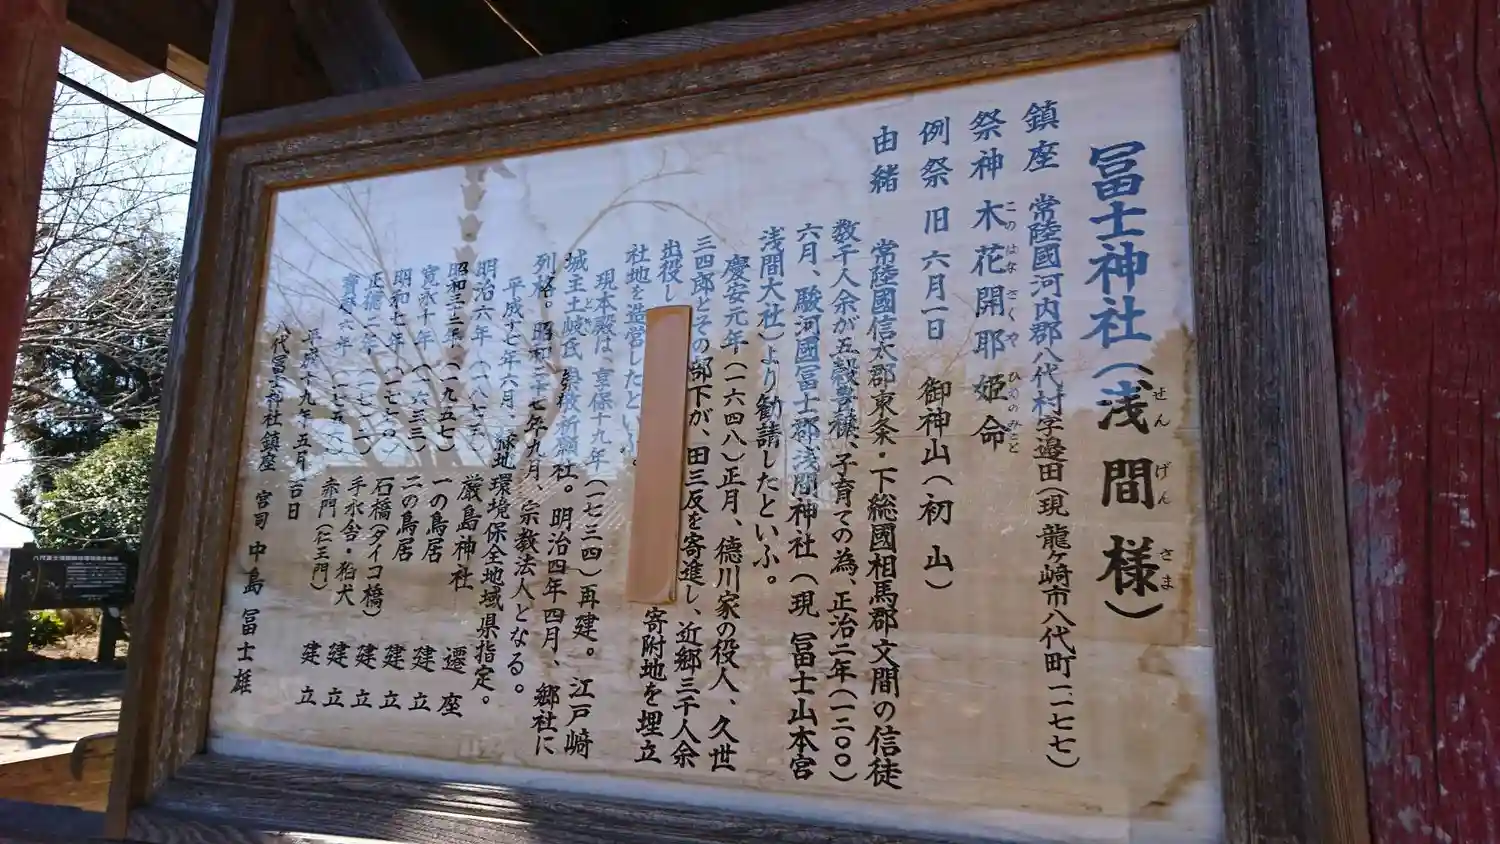 冨士神社（浅間様）
せんげんさま
鎮座 常陸國河内郡八代村字邉田（現 龍ケ崎市八代町一二七七）
祭神 木花開耶姫命
このはなさくやひめのみこと
例祭 旧 六月一日 御神山（初山）
由緒
常陸國信太郡東条・下総國相馬郡文間の信徒
数千人余が五穀豊穣、子育ての為、正治二年（一二〇〇）
六月、駿河國冨士郡浅間神社（現 冨士山本宮
浅間大社）より勧請したといふ。
慶安元年（一六四八）正月、德川家の役人、久世
三四郎とその部下が、田三反を寄進し、近郷三千人余
出役し 寄附地を埋立
社地を造営したとい
現本殿は、享保十九年（一七三四）再建。江戸崎
城主土岐氏 祈願社。明治四年四月、郷社に
列格。昭和二十七年九月、宗教法人となる。
平成十七年六月 緑地環境保全地域県指定。
明治六年（一八七三） 厳島神社 遷座
昭和三十二年（一九五七） 一の鳥居 建立
寛永十年（一六三三） 二の鳥居 建立
明和七年（一七七〇） 石橋（タイコ橋） 建立
正徳二年 手水舎・狛犬 建立
六年 赤門（仁王門） 建立
平成十九年五月吉日
八代冨士神社鎮座 宮司 中島冨士雄